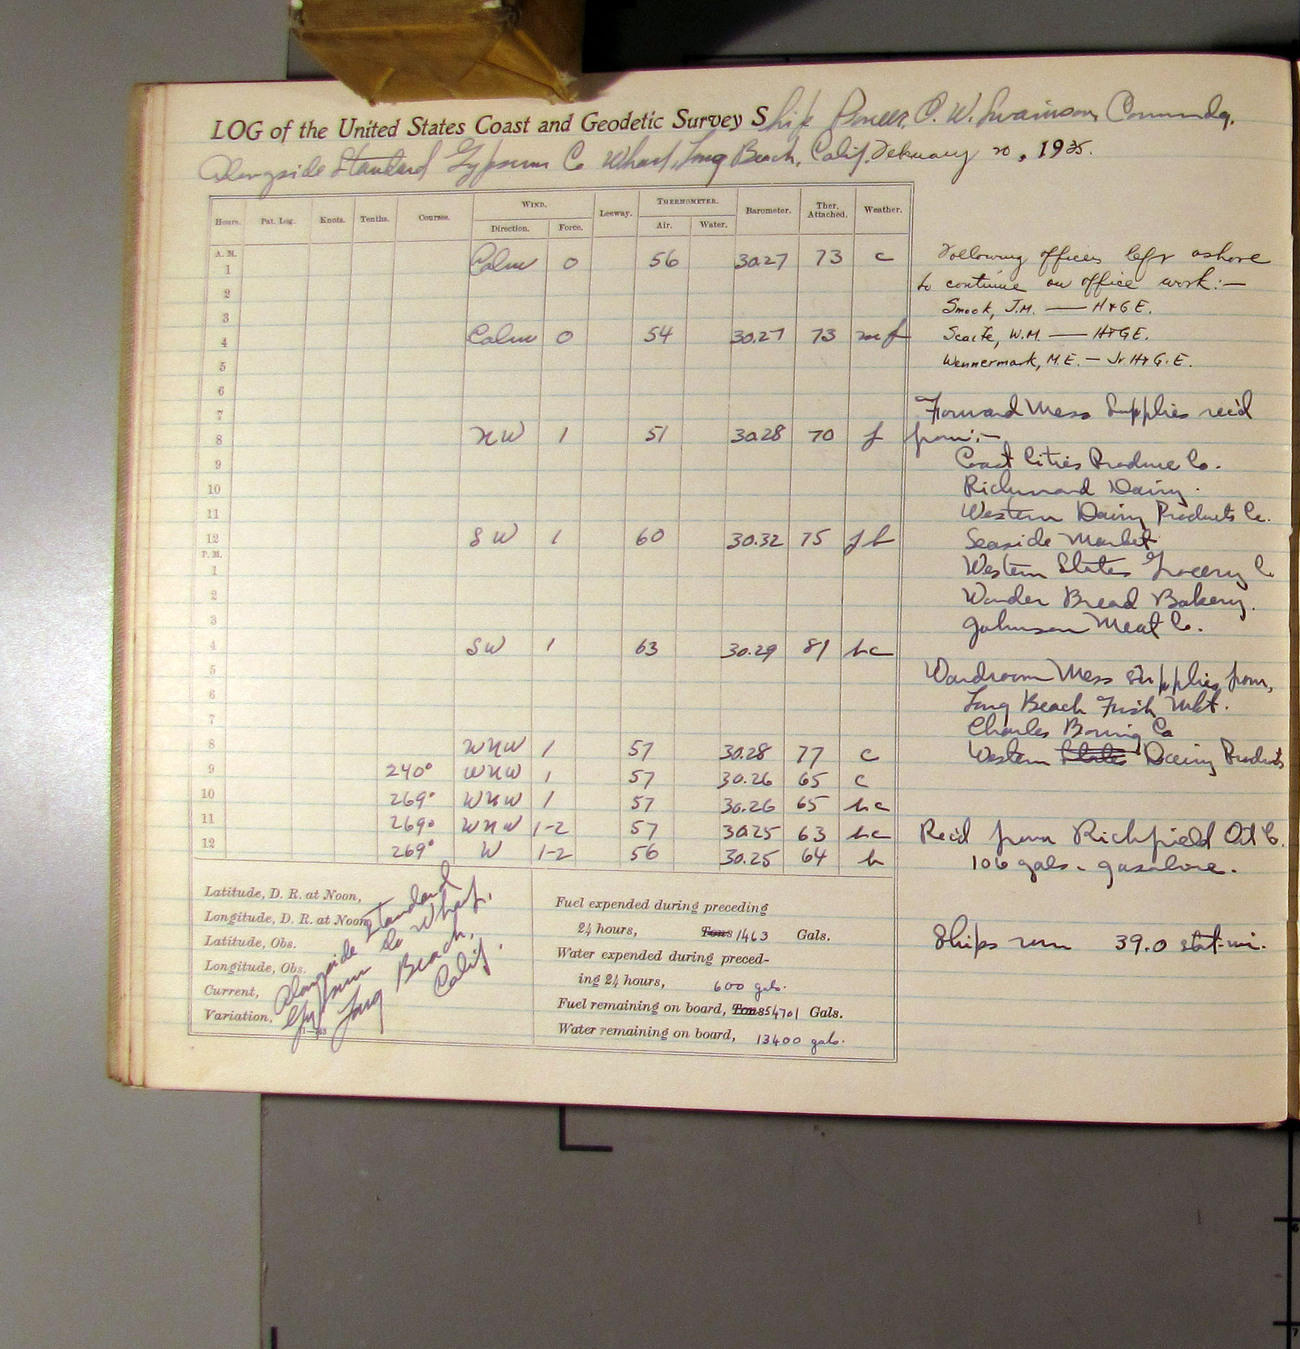 LOG of the United States Coast and Geodetic Survey Ship Pioneer, O. W. Swainson, Commndg.
Alongside Standard Gypsum Co Wharf, Long Beach, Calif. February 20, 1935.
Hours. Pat. Log. Knots. Tenths. Courses. WIND. Leeway. THERMOMETER. Barometer. Ther. Attached. Weather.
Direction. Force. Air. Water.
A. M.
1 Calm 0 56 30.27 73 c
2
3
4 Calm 0 54 30.27 73 mf
5
6
7
8 NW 1 51 30.28 70 f
9
10
11
12 SW 1 60 30.32 75 f b
P. M.
1
2
3
4 SW 1 63 30.29 81 bc
5
6
7
8 WNW 1 57 30.28 77 c
9 240° WNW 1 57 30.26 65 c
10 269° WNW 1 57 30.26 65 bc
11 269° WNW 1-2 57 30.25 63 bc
12 269° W 1-2 56 30.25 64 b
Following officers left ashore
to continue on office work:—
Smook, J.M. — H&GE.
Scaife, W.M. — H&GE.
Wennermark, M.E. — Jr H&G.E.
Forward Mess Supplies rec'd
from:—
Coast Cities Produce Co.
Richmond Dairy.
Western Dairy Products Co.
Seaside Market
Western States Grocery Co
Wonder Bread Bakery.
Johnson Meat Co.
Wardroom Mess supplies from,
Long Beach Fish Mkt.
Charles Co
Western States Dairy Products
Rec'd from Richfield Oil Co.
106 gals. gasolene.
Ships run 39.0 stat. mi.
Latitude, D. R. at Noon,
Longitude, D. R. at Noon,
Latitude, Obs.
Longitude, Obs.
Current,
Variation,
Alongside Standard
Gypsum Co Wharf,
Long Beach,
Calif.
Fuel expended during preceding
24 hours, Tons 1463 Gals.
Water expended during preced-
ing 24 hours, 600 gals.
Fuel remaining on board, Tons 54701 Gals.
Water remaining on board, 13400 gals.